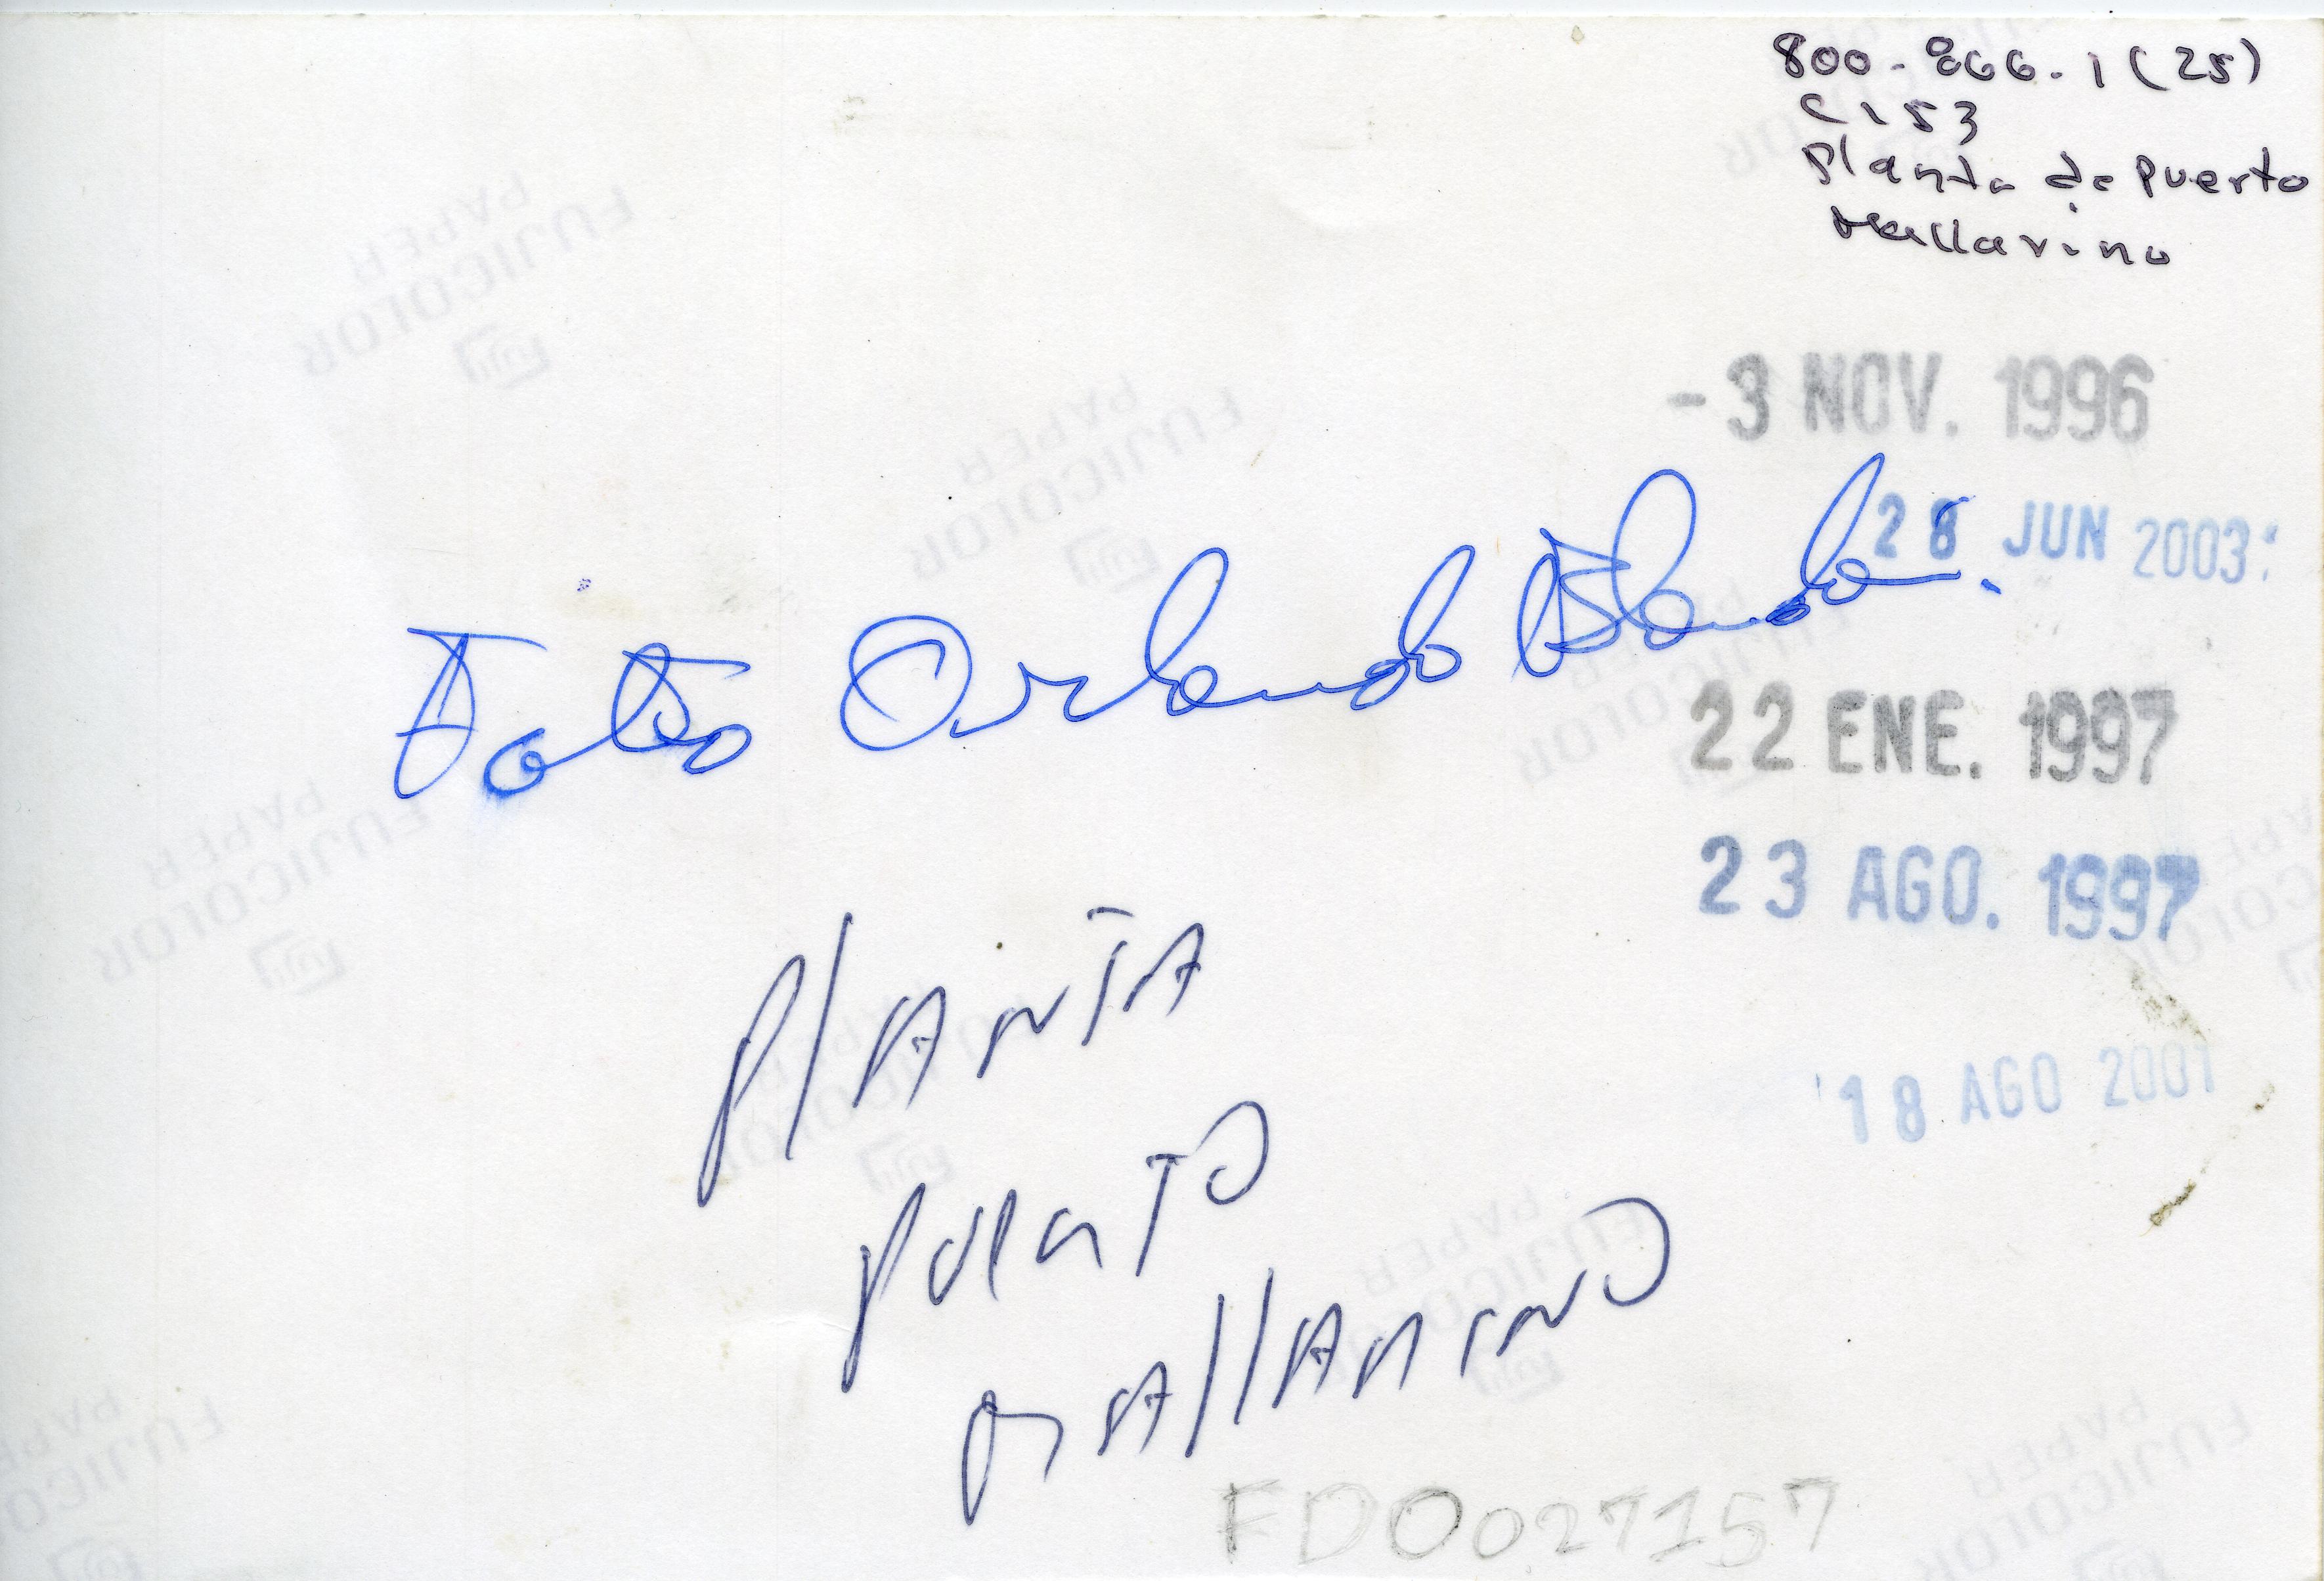 800-866-1(25)
C153
Planta de Puerto
Mallarino
-3 NOV. 1996
28 JUN 2003
Foto Orlando
22 ENE. 1997
23 AGO. 1997
18 AGO 2001
PlANTA
PUERTO
MAllARINO
FD0027157
FUJICOLOR
PAPER